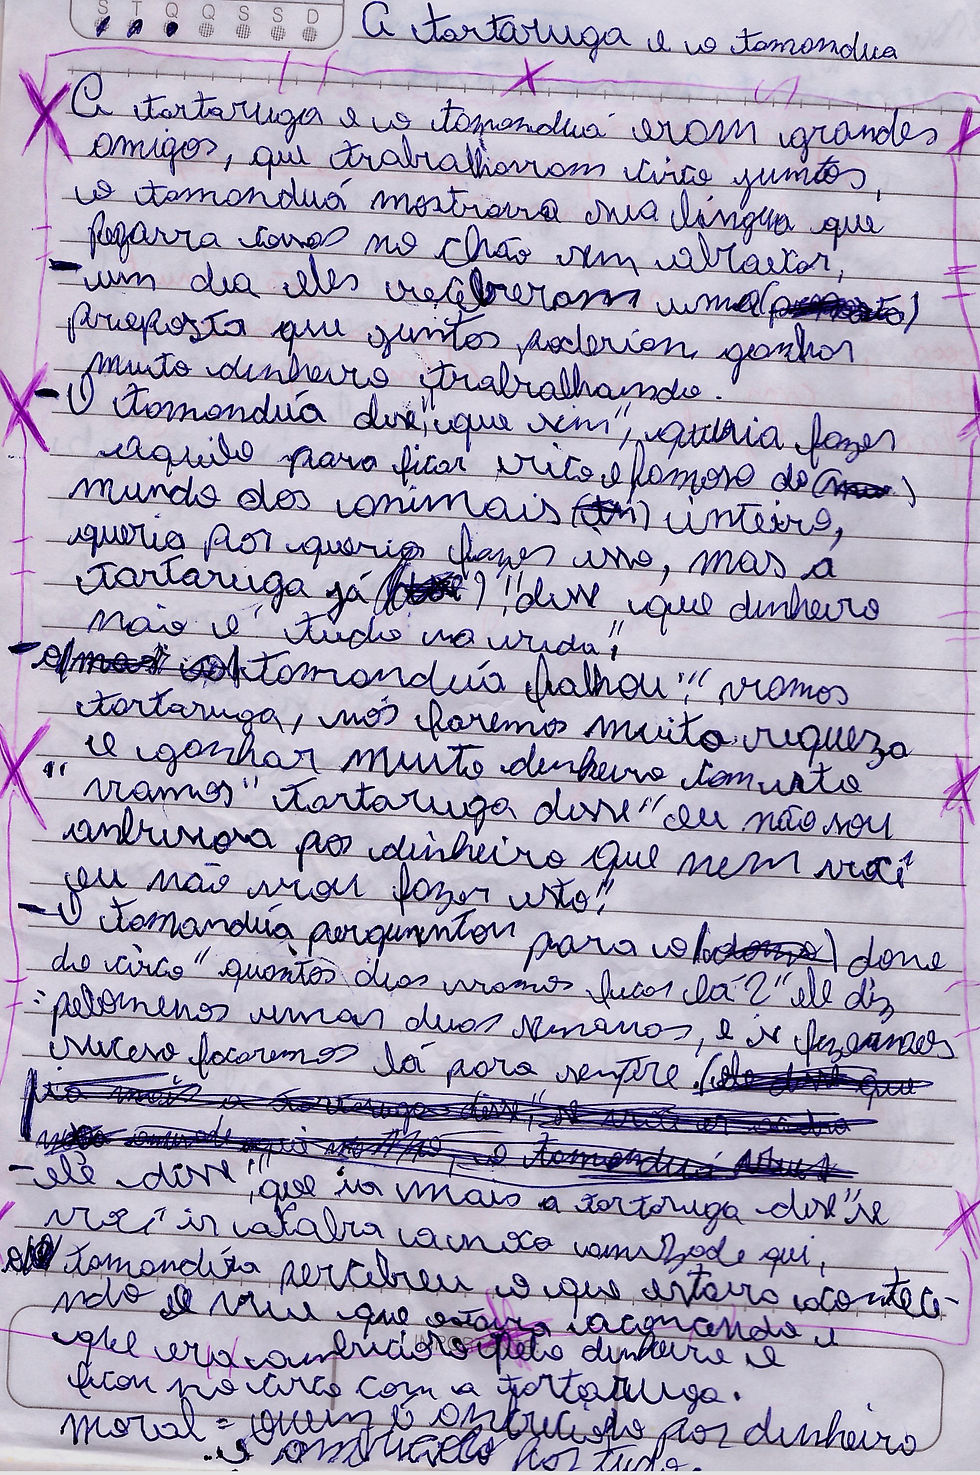 S T Q Q S S D
A tartaruga e o tamandua
A tartaruga e o tamanduá eram grandes
amigos, que trabalhavam circo juntos,
o tamanduá mostrava sua língua que
pegarra coisas no chão sem abaixar,
- um dia eles receberam uma
proposta que juntos poderiam ganhar
muito dinheiro trabalhando.
- O tamanduá disse "que sim", queria fazer
aquilo para ficar rico e famoso do
mundo dos animais inteiro,
queria por queria fazer isso, mas a
tartaruga já "disse que dinheiro
não é tudo na vida",
- o tamanduá falhou "vamos
tartaruga, nós faremos muita riqueza
e ganhar muito dinheiro com isto
"vamos" tartaruga disse "eu não sou
ambisosa por dinheiro que nem você
eu não vou fazer isto".
- O tamanduá perguntou para o dono
do circo "quantos dias vamos ficar lá?" ele diz
pelomenos umas duas semanas, e se fizermos
suceso ficaremos lá para sempre.
- ele disse "que ia mais a tartaruga disse "se
você ir acaba a nosa amizade qui,
o tamanduá percebeu o que estava acontece-
ndo e viu que estava
que era ambicioso pelo dinheiro e
ficou no circo com a tartaruga.
moral = quem é ambicioso por dinheiro
é ambicioso por tudo.